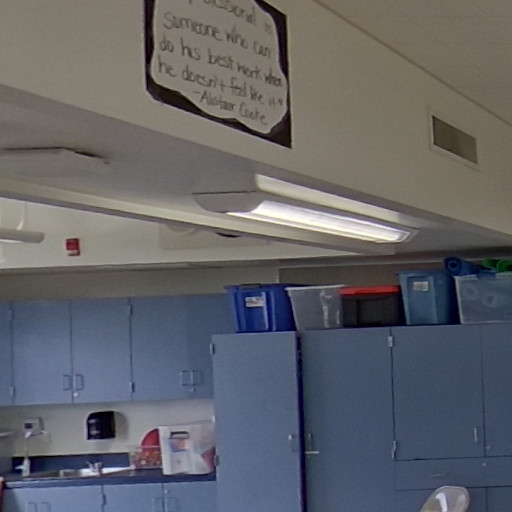 professional is
someone who can
do his best work when
he doesn't feel like it."
-Alistair Cooke